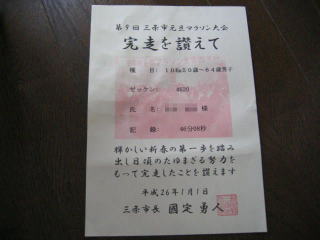 第9回 三条市元旦マラソン大会
完走を讃えて
種 目: 10Km50歳〜64歳男子
ゼッケン: 4620
氏 名: 様
記 録: 46分08秒
輝かしい新春の第一歩を踏み
出し日頃のたゆまざる努力を
もって完走したことを讃えます
平成26年1月1日
三条市長 國定勇人